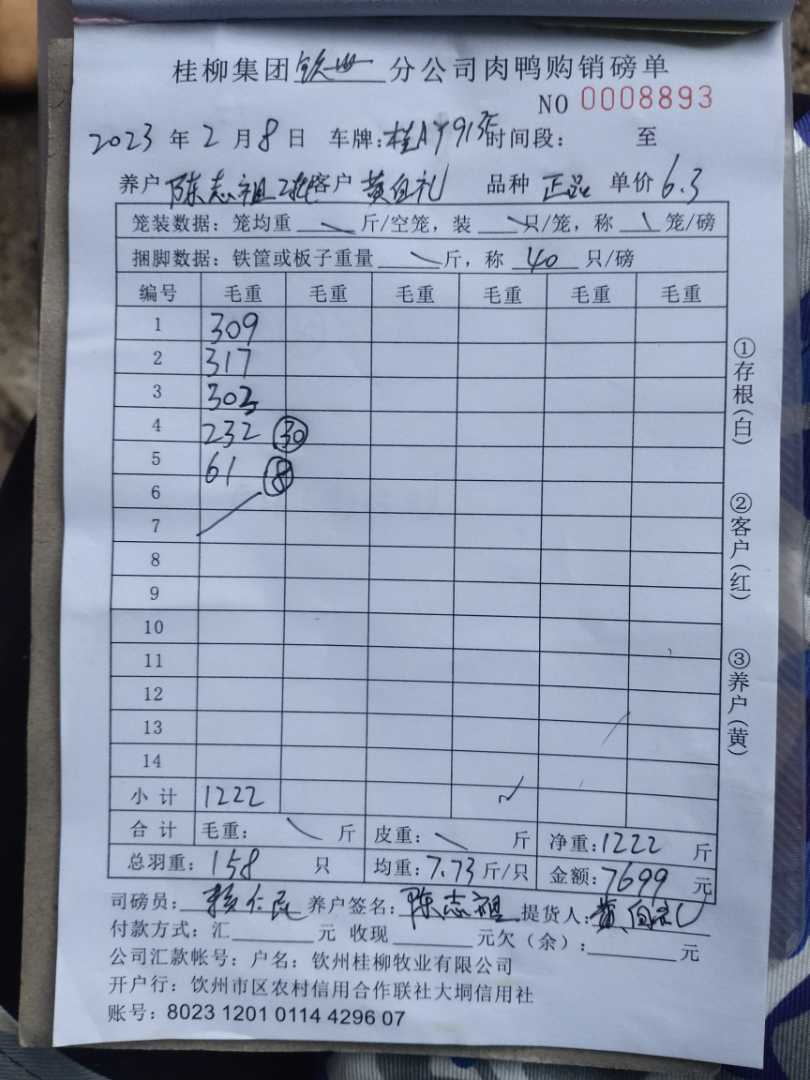 桂柳集团钦州分公司肉鸭购销磅单
NO 0008893
2023 年 2 月 8 日 车牌:桂AY913 时间段: 至
养户 陈志祖 客户 黄自礼 品种 正品 单价 6.3
笼装数据: 笼均重 \ 斤/空笼, 装 \ 只/笼, 称 \ 笼/磅
捆脚数据: 铁筐或板子重量 \ 斤, 称 40 只/磅
编号 毛重 毛重 毛重 毛重 毛重 毛重
1 309
2 317
3 303
4 232 30
5 61 8
6
7
8
9
10
11
12
13
14
小计 1222
合计 毛重: \ 斤 皮重: \ 斤 净重:1222 斤
总羽重: 158 只 均重: 7.73 斤/只 金额: 7699 元
司磅员: 养户签名: 陈志祖 提货人: 黄自礼
付款方式: 汇 元 收现 元欠(余): 元
公司汇款帐号: 户名: 钦州桂柳牧业有限公司
开户行: 钦州市区农村信用合作联社大垌信用社
账号: 8023 1201 0114 4296 07
①存根(白)
②客户(红)
③养户(黄)